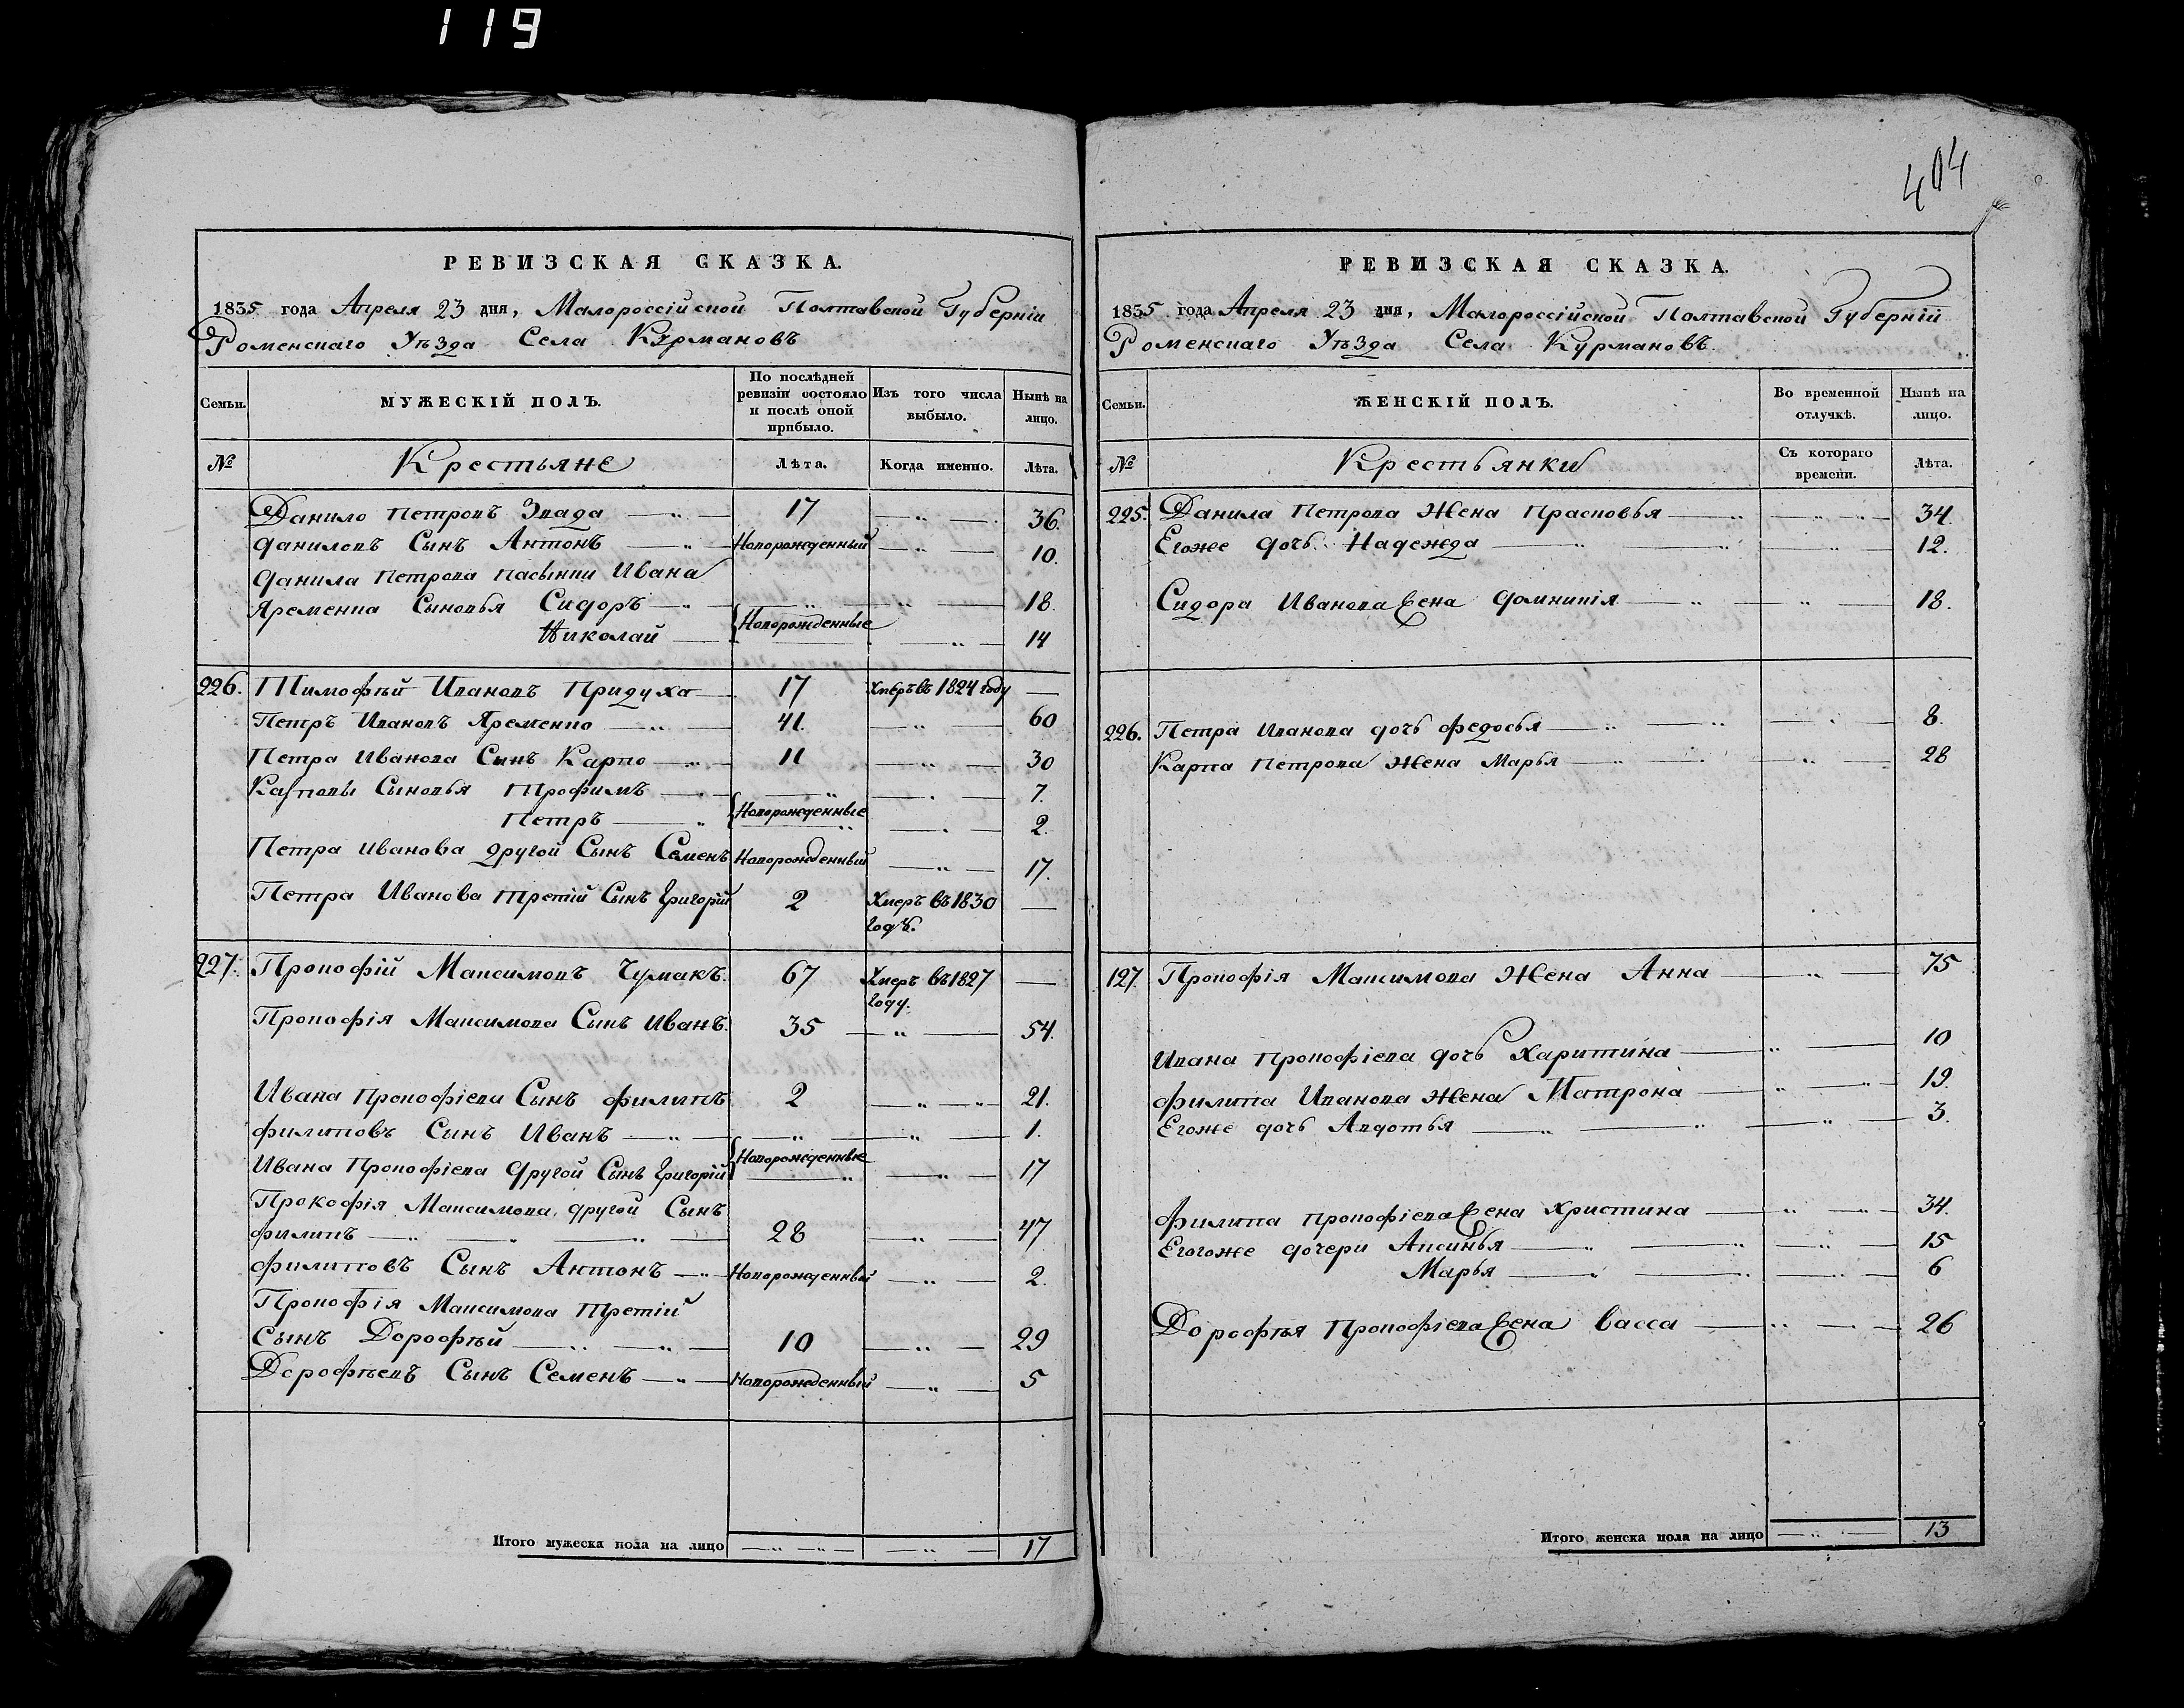 119
404
РЕВИЗСКАЯ СКАЗКА.
1835 года Апреля 23 дня, Малороссійской Полтавской Губерніи
Роменскаго Уѣзда Села Курмановъ
Семьи.
МУЖЕСКІЙ ПОЛЪ.
По послѣдней ревизіи состояло и послѣ оной прибыло.
Изъ того числа выбыло.
Нынѣ на лицо.
№ Крестьяне Лѣта. Когда именно. Лѣта.
Данило Петровъ 17 36.
Даниловъ Сынъ Антонъ Новорожденный 10.
Данила Петрова пасынки Ивана
Яременка Сыновья Сидоръ 18.
Новорожденные
Николай 14
226. Тимофѣй Ивановъ Придуха 17 Умеръ въ 1824 году —
Петръ Ивановъ Яременко 41. 60
Петра Иванова Сынъ Карпо 11 30
Карповы Сыновья Трофимъ 7.
Новорожденные
Петръ 2.
Петра Иванова другой Сынъ Семенъ Новорожденный 17.
Петра Иванова третій Сынъ Григорій 2 Умеръ въ 1830 —
годѣ.
227. Прокофій Максимовъ Чумакъ. 67 Умеръ въ 1827 —
году.
Прокофія Максимова Сынъ Иванъ. 35 54.
Ивана Прокофіева Сынъ Филипъ 2 21.
Филиповъ Сынъ Иванъ 1.
Новорожденные
Ивана Прокофіева другой Сынъ Григорій 17
Прокофія Максимова другой Сынъ
Филипъ 28 47
Филиповъ Сынъ Антонъ Новорожденный 2.
Прокофія Максимова третій
Сынъ Дорофѣй 10 29
Дорофѣевъ Сынъ Семенъ Новорожденный 5
Итого мужеска пола на лицо 17
РЕВИЗСКАЯ СКАЗКА.
1835 года Апреля 23 дня, Малороссійской Полтавской Губерніи
Роменскаго Уѣзда Села Курмановъ
Семьи.
ЖЕНСКІЙ ПОЛЪ.
Во временной отлучкѣ.
Нынѣ на лицо.
№ Крестьянки Съ котораго времени. Лѣта.
225. Данила Петрова Жена Прасковья 34.
Егоже дочь Надежда 12.
Сидора Иванова Жена Домникія 18.
226. Петра Иванова дочь Федосья 8.
Карпа Петрова Жена Марья 28
127. Прокофія Максимова Жена Анна 75
Ивана Прокофіева дочь Харитина 10
Филипа Иванова Жена Матрона 19.
Егоже дочь Авдотья 3.
Филипа Прокофіева Жена Христина 34.
Егогоже дочери Аксинья 15
Марья 6
Дорофѣя Прокофіева Жена Васса 26
Итого женска пола на лицо 13